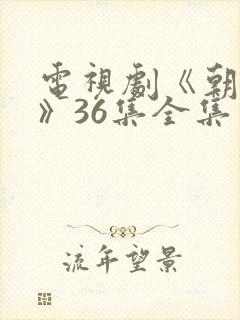 電視劇《朝
》36集全集
流年望景